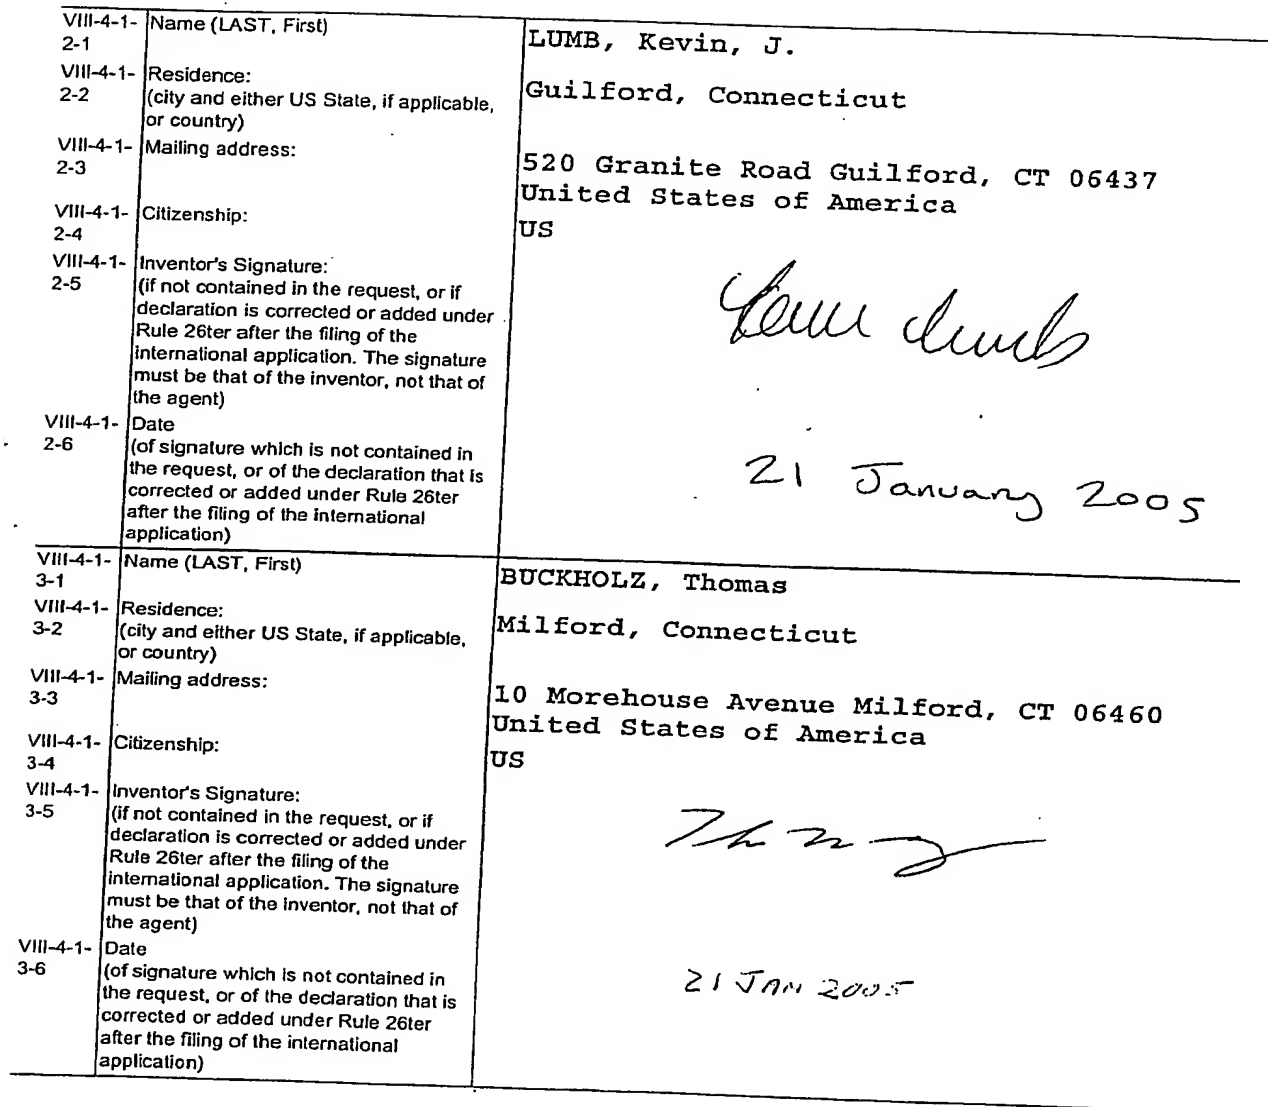 VIII-4-1- Name (LAST, First) LUMB, Kevin, J.
2-1
VIII-4-1- Residence: Guilford, Connecticut
2-2 (city and either US State, if applicable,
or country)
VIII-4-1- Mailing address: 520 Granite Road Guilford, CT 06437
2-3 United States of America
VIII-4-1- Citizenship: US
2-4
VIII-4-1- Inventor's Signature:
2-5 (if not contained in the request, or if
declaration is corrected or added under
Rule 26ter after the filing of the
international application. The signature
must be that of the inventor, not that of
the agent)
Kevin Lumb
VIII-4-1- Date
2-6 (of signature which is not contained in
the request, or of the declaration that is
corrected or added under Rule 26ter
after the filing of the international
application)
21 January 2005
VIII-4-1- Name (LAST, First) BUCKHOLZ, Thomas
3-1
VIII-4-1- Residence: Milford, Connecticut
3-2 (city and either US State, if applicable,
or country)
VIII-4-1- Mailing address: 10 Morehouse Avenue Milford, CT 06460
3-3 United States of America
VIII-4-1- Citizenship: US
3-4
VIII-4-1- Inventor's Signature:
3-5 (if not contained in the request, or if
declaration is corrected or added under
Rule 26ter after the filing of the
international application. The signature
must be that of the inventor, not that of
the agent)
VIII-4-1- Date
3-6 (of signature which is not contained in
the request, or of the declaration that is
corrected or added under Rule 26ter
after the filing of the international
application)
21 JAN 2005